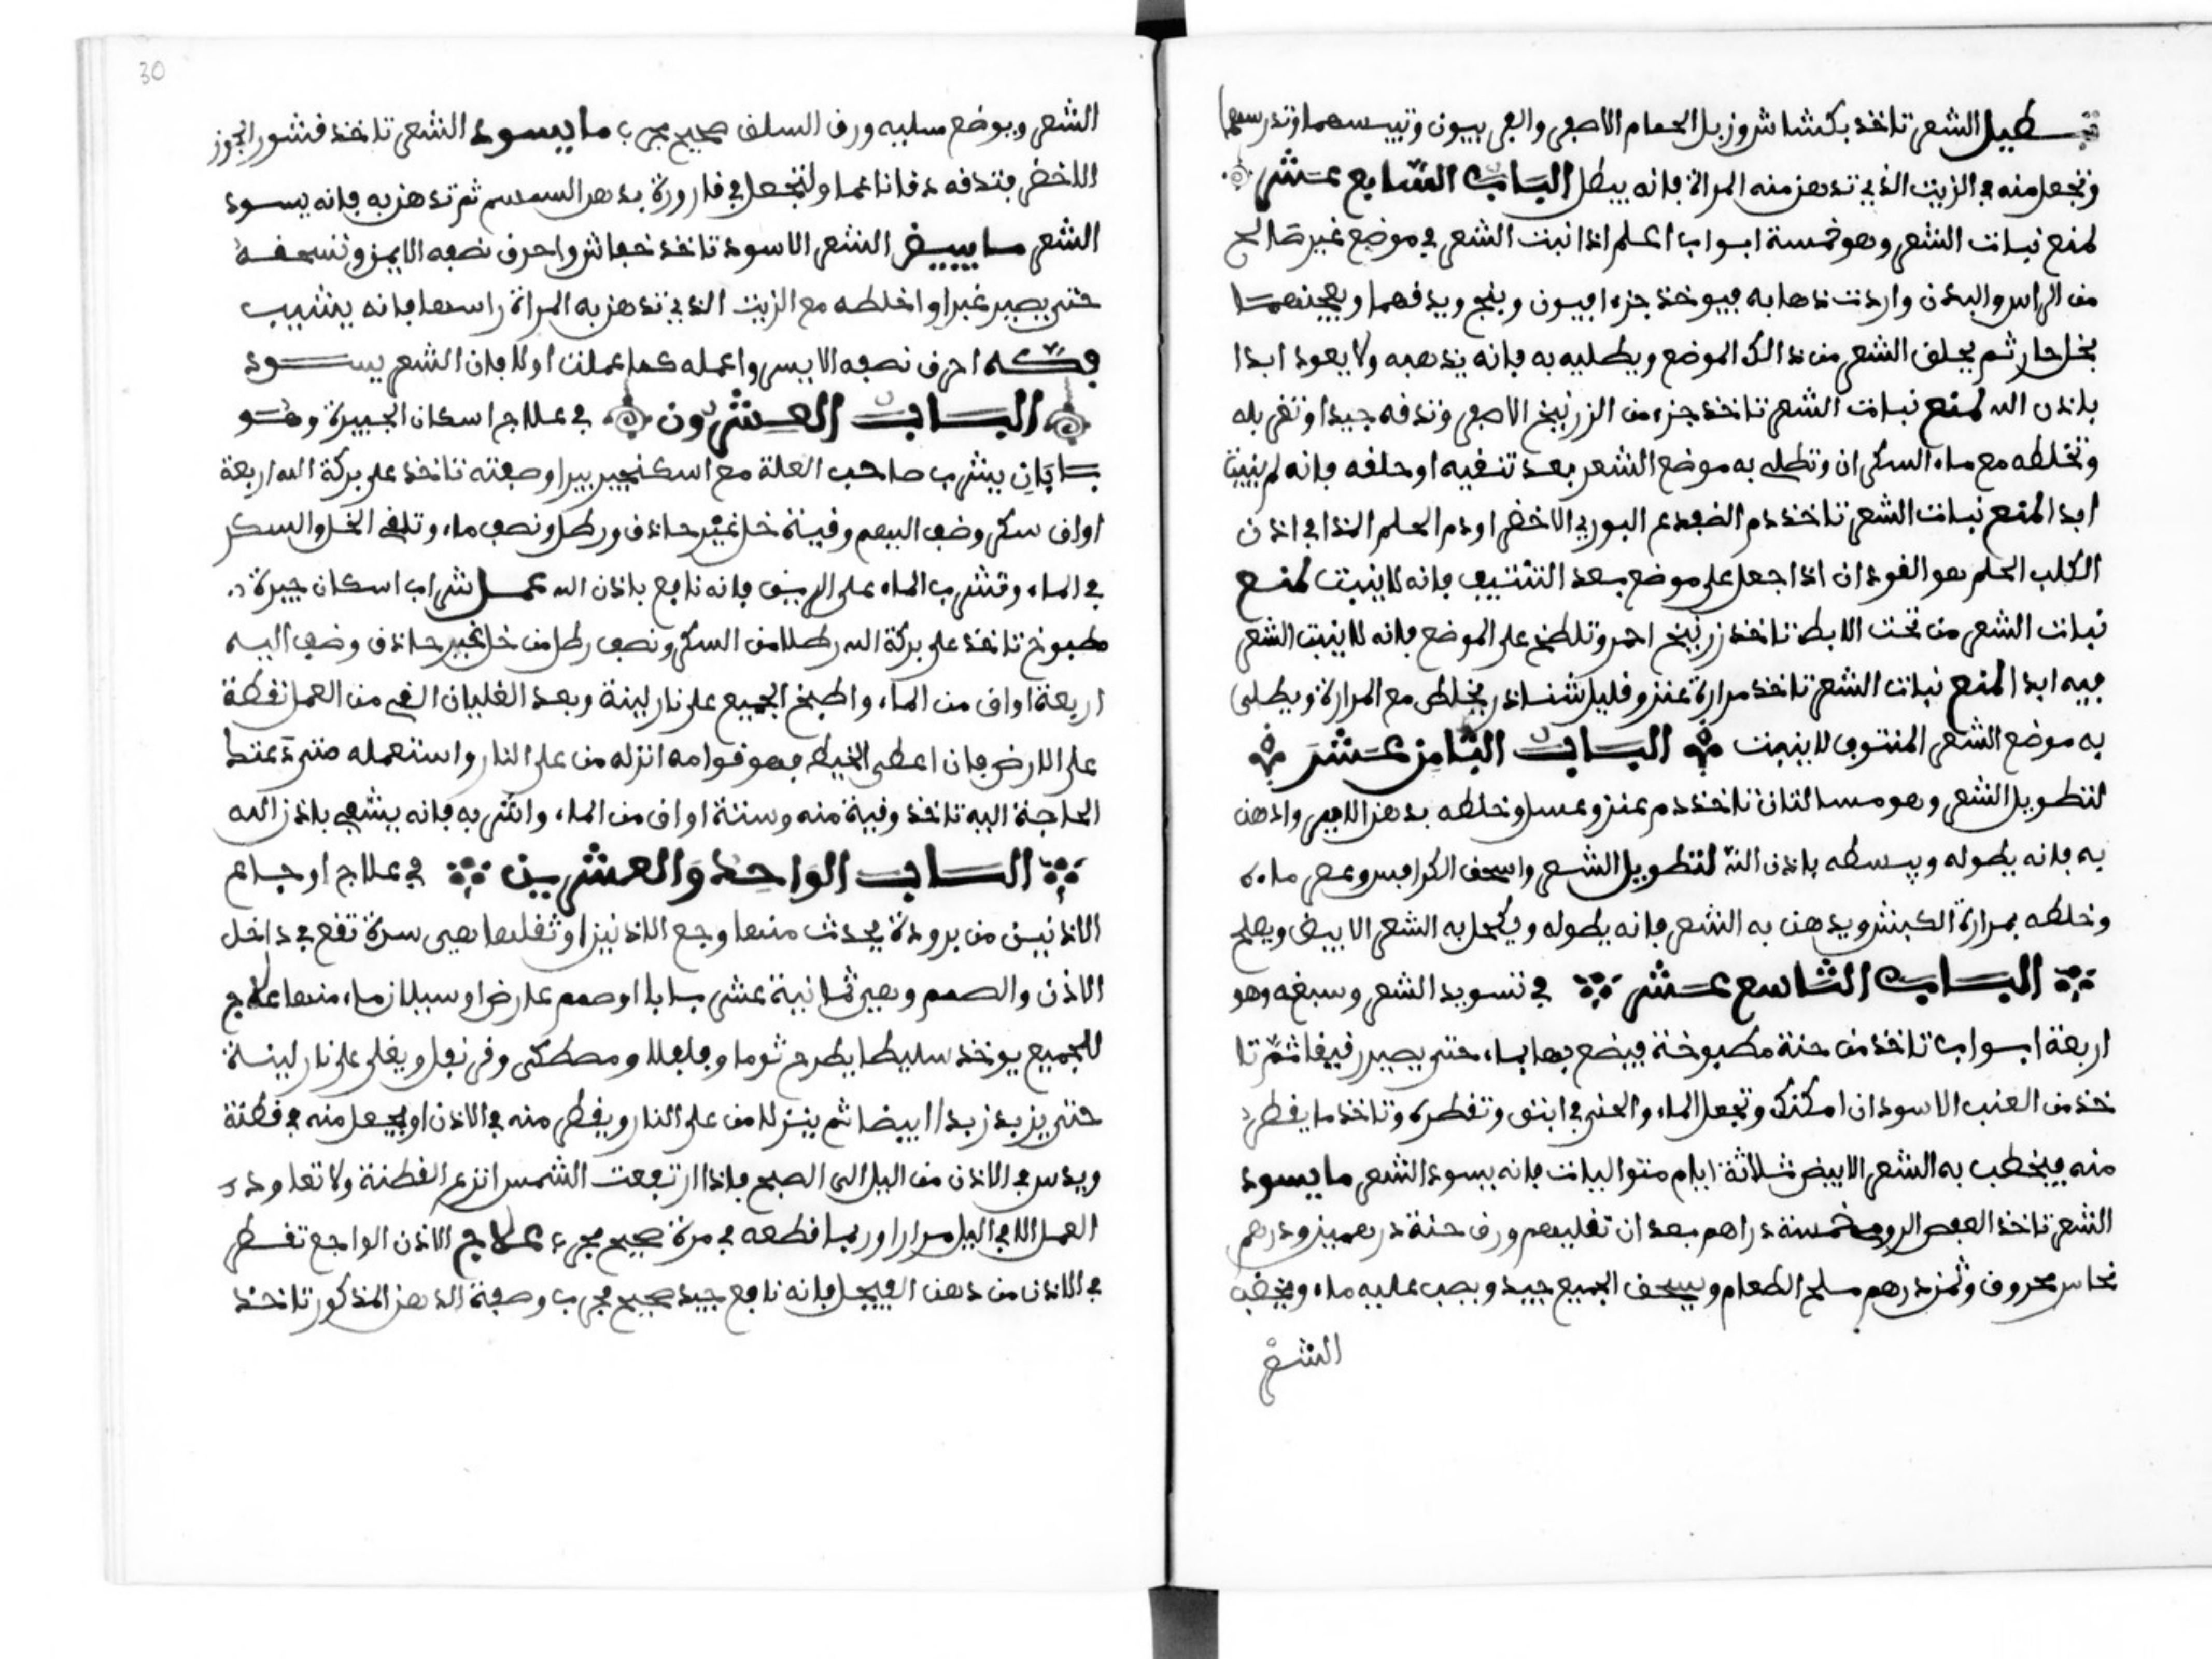 الشعر تاخذ بكشاش وزبل الحمام الاصفر والفربيون وتيبسهما وتدرسهما
وتجعل منه في الزيت الذي تدهن منه المراة فانه يبطل الباب السابع عشر
لمنع نبات الشعر وهو خمسة ابواب اعلم اذا نبت الشعر في موضع غير صالح
من الراس والبدن واردت ذهابه فيوخذ جزء افيون وبنج ويدقهما ويعجنهما
بخل حار ثم يحلق الشعر من ذالك الموضع ويطليه به فانه يذهبه ولا يعود ابدا
باذن الله لمنع نبات الشعر تاخذ جزء من الزرنيخ الاصفر وتدقه جيدا وتغربله
وتخلطه مع ماء السكران وتطلي به موضع الشعر بعد تنقيه او حلقه فانه لم ينبت
ابدا لمنع نبات الشعر تاخذ دم الضفدع البوري الاخضر او دم الحلم الذا في اذن
الكلب الحلم هو القودان اذا جعل على موضع بعد التنتيف فانه لا ينبت لمنع
نبات الشعر من تحت الابط تاخذ زرنيخ احمر وتلطخ على الموضع فانه لا ينبت الشعر
فيه ابدا لمنع نبات الشعر تاخذ مرارة عنز وقليل شناذر يخلط مع المرارة ويطلى
به موضع الشعر المنتوف لا ينبت الباب الثامن عشر
لتطويل الشعر وهو مسالتان تاخذ دم عنز وعسل وخلطه بدهن الاس وادهن
به فانه يطوله ويبسطه باذن الله لتطويل الشعر واسحق الكرافس وعصر ماءه
وخلطه بمرارة الكبش ويدهن به الشعر فانه يطوله ويكحل به الشعر الابيض ويصلح
الباب التاسع عشر في تسويد الشعر وسبغه وهو
اربعة ابواب تاخذ من حنة مطبوخة فيضع بها بماء حتى يصير رقيقا ثم تا
خذ من العنب الاسود ان امكنك وتجعل الماء والحنى في ابنق وتقطره وتاخذ ما يقطر
منه فيخطب به الشعر الابيض ثلاثة ايام متواليات فانه يسود الشعر ما يسود
الشعر تاخذ العفص الرومي خمسة دراهم بعد ان تقليهم ورق حنة درهمين ودرهم
نحاس محروق وثمن درهم ملح الطعام ويسحق الجميع جيد ويصب عليه ماء ويخضب
الشعر
30
الشعر ويوضع عليه ورق السلق صحيح مجرب ما يسود الشعر تاخذ قشور الجوز
الاخضر فتدقه دقا ناعما ولتجعل في قارورة بدهن السمسم ثم تدهن به فانه يسود
الشعر ما يبيض الشعر الاسود تاخذ خفاش واحرق نصفه الايمن وتسحقه
حتى يصير غبرا واخلطه مع الزيت الذي تدهن به المراة راسها فانه يشيب
فكه احرق نصفه الايسر واعمله كما عملت اولا فان الشعر يسود
الباب العشرون في علاج اسكان الجبيرة وهو
بابان يشرب صاحب العلة مع اسكنجبير بيرا وصفته تاخذ على بركة الله اربعة
اواق سكر وضف اليهم وقية خل غير حاذق ورطل ونصف ماء وتلقي الخل والسكر
في الماء وتشرب الماء على الريق فانه نافع باذن الله عمل شراب اسكان جبيرة
مطبوخ تاخذ على بركة الله رطلا من السكر ونصف رطل من خل غير حاذق وضف اليه
اربعة اواق من الماء واطبخ الجميع على نار لينة وبعد الغليان القي من العمل نقطة
على الارض فان اعطى الخيط فهو قوامه انزله من على النار واستعمله متى دعتك
الحاجة اليه تاخذ وقية منه وستة اواق من الماء واشربه فانه يشفي باذن الله
الباب الواحد والعشرين في علاج اوجاع
الاذنين من برودة يحدث منها وجع الاذنين او ثقلها هي سرة تقع في داخل
الاذن والصمم وهي ثمانية عشر بابا او صمم عارض او سيلان ماء منها علاج
للجميع يوخذ سليطا يطرح ثوما وفلفلا ومصطكى وقرنفل ويغلى على نار لينة
حتى يزبد زبدا ابيضا ثم ينزلا من على النار ويقطر منه في الاذن او يجعل منه في قطنة
ويدس في الاذن من اليل الى الصبح فاذا ارتفعت الشمس انزع القطنة ولا تعاود
العمل الا في اليل مرارا وربما قطعه في مرة صحيح مجرب علاج الاذن الواجع تقطر
في الاذن من دهن الفيجل فانه نافع جيد صحيح مجرب وصفة الدهن المذكور تاخذ